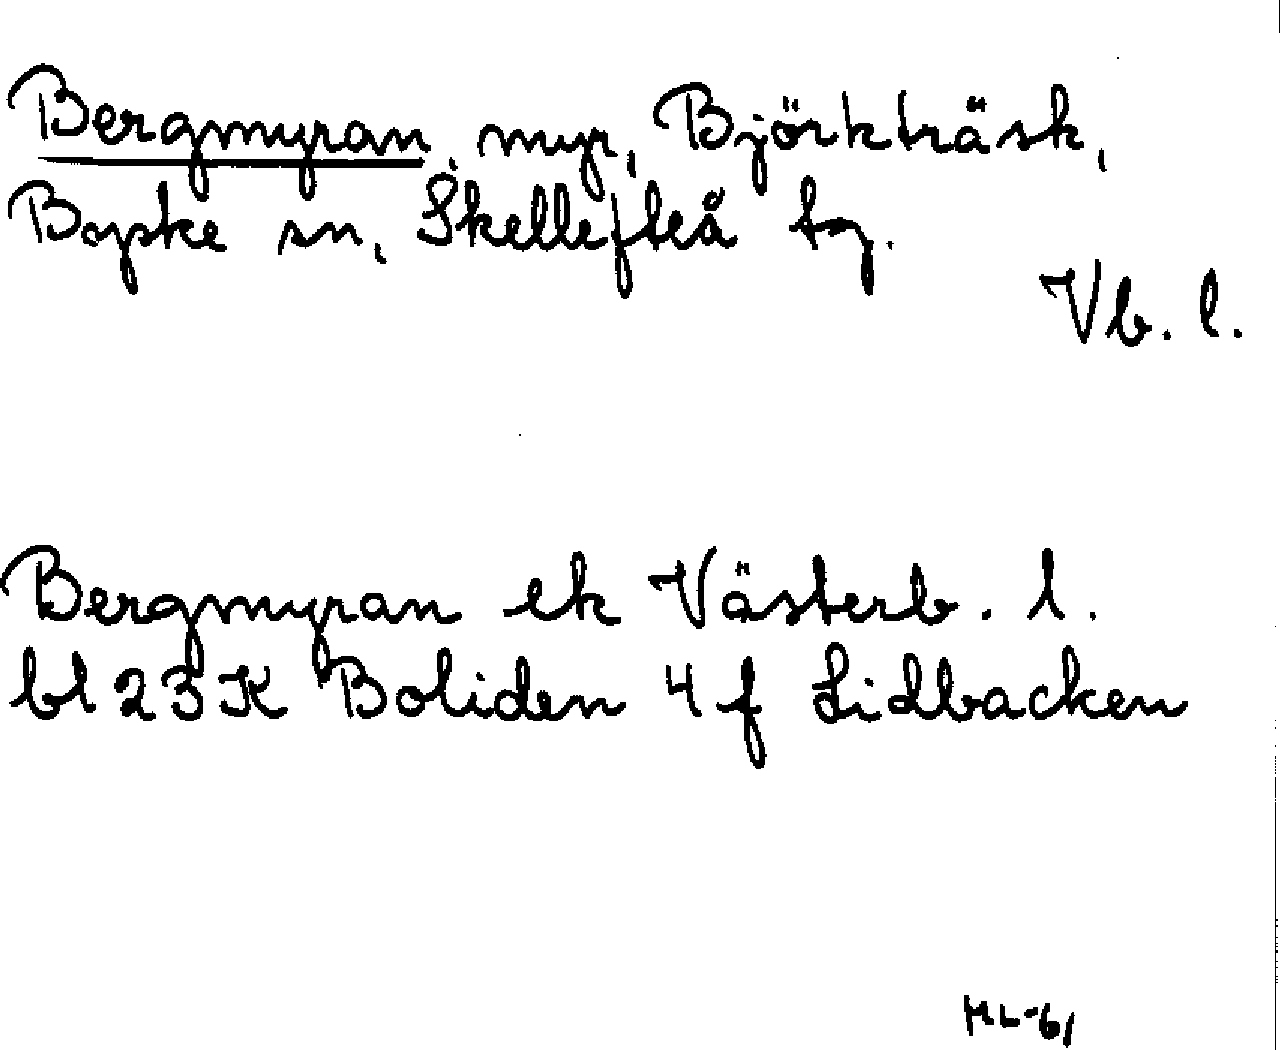 Bergmyran, myr, Björkträsk,
Bygske sn, Skellefteå tg.
Vb. l.
Bergmyran ek Västerb. l.
bl 23 K Boliden 4 f Lidbacken
ML-61